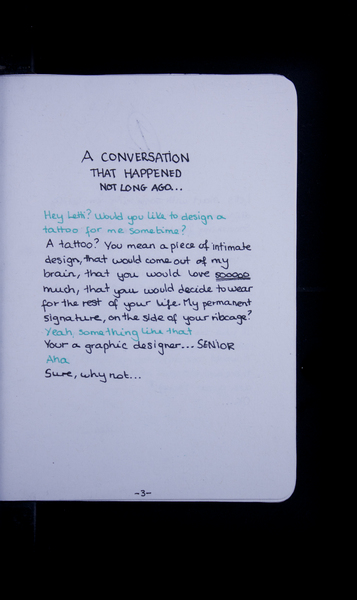 A CONVERSATION
THAT HAPPENED
NOT LONG AGO...
Hey Letti? Would you like to design a
tattoo for me sometime?
A tattoo? You mean a piece of intimate
design, that would come out of my
brain, that you would love sooooo
much, that you would decide to wear
for the rest of your life. My permanent
signature, on the side of your ribcage?
Yeah something like that
Your a graphic designer... SENIOR
Aha
Sure, why not...
-3-